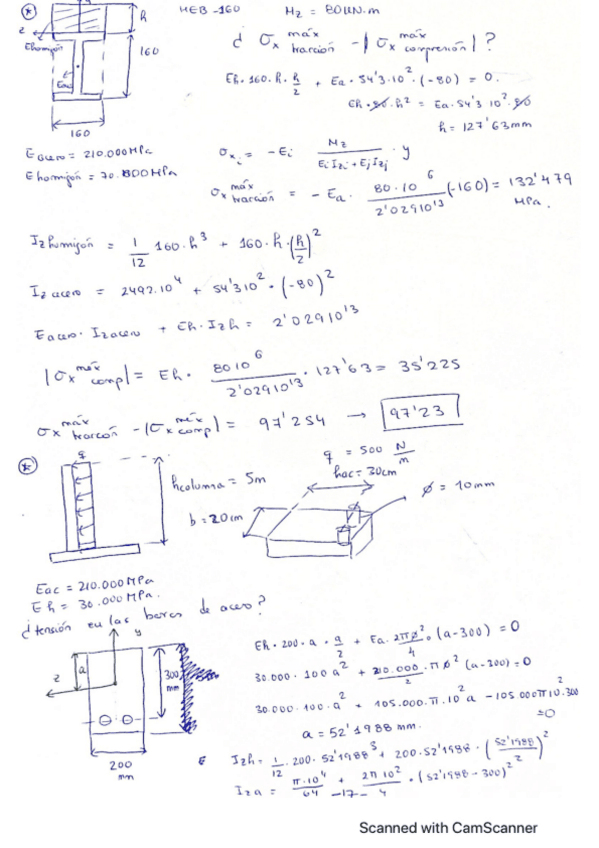 HEB-160   Mz = 80kN.m
h
z
Ehomigón
160
Eac
160
¿ σx máx tracción - |σx máx compresión| ?
Eh·160·h·h/2 + Ea·54'3·10²·(-80) = 0.
Eh·80·h² = Ea·54'3 10²·80
h = 127'63mm
Eacero = 210.000MPa
Ehomigón = 70.800MPa
σxi = -Ei Mz/(EiIzi + EjIzj) · y
σx máx tracción = -Ea · 80·10⁶/2'029·10¹³ (-160) = 132'479 MPa.
Izhomigón = 1/12 160·h³ + 160·h·(h/2)²
Iz acero = 2492·10⁴ + 54'3 10²·(-80)²
Eacero·Izacero + Eh·Izh = 2'029 10¹³
|σx máx comp| = Eh · 80 10⁶/2'029 10¹³ · 127'63 = 35'225
σx máx tracción - |σx máx comp| = 97'254 → 97'23
q
hcolumna = 5m
q = 500 N/m
hac = 30cm
b = 20cm
ø = 10mm
Eac = 210.000MPa
Eh = 30.000MPa.
¿tensión en las barras de acero?
y
z
a
300 mm
200 mm
Eh·200·a·a/2 + Ea·2πø²/4·(a-300) = 0
30.000·100 a² + 210.000/2·πø²(a-300) = 0
30.000·100·a² + 105.000·π·10²a - 105 000π10²·300 = 0
a = 52'1988 mm.
Izh = 1/12·200·52'1988³ + 200·52'1988·(52'1988/2)²
Iza = π·10⁴/64 + 2π10²/4·(52'1988-300)²
-17-
Scanned with CamScanner